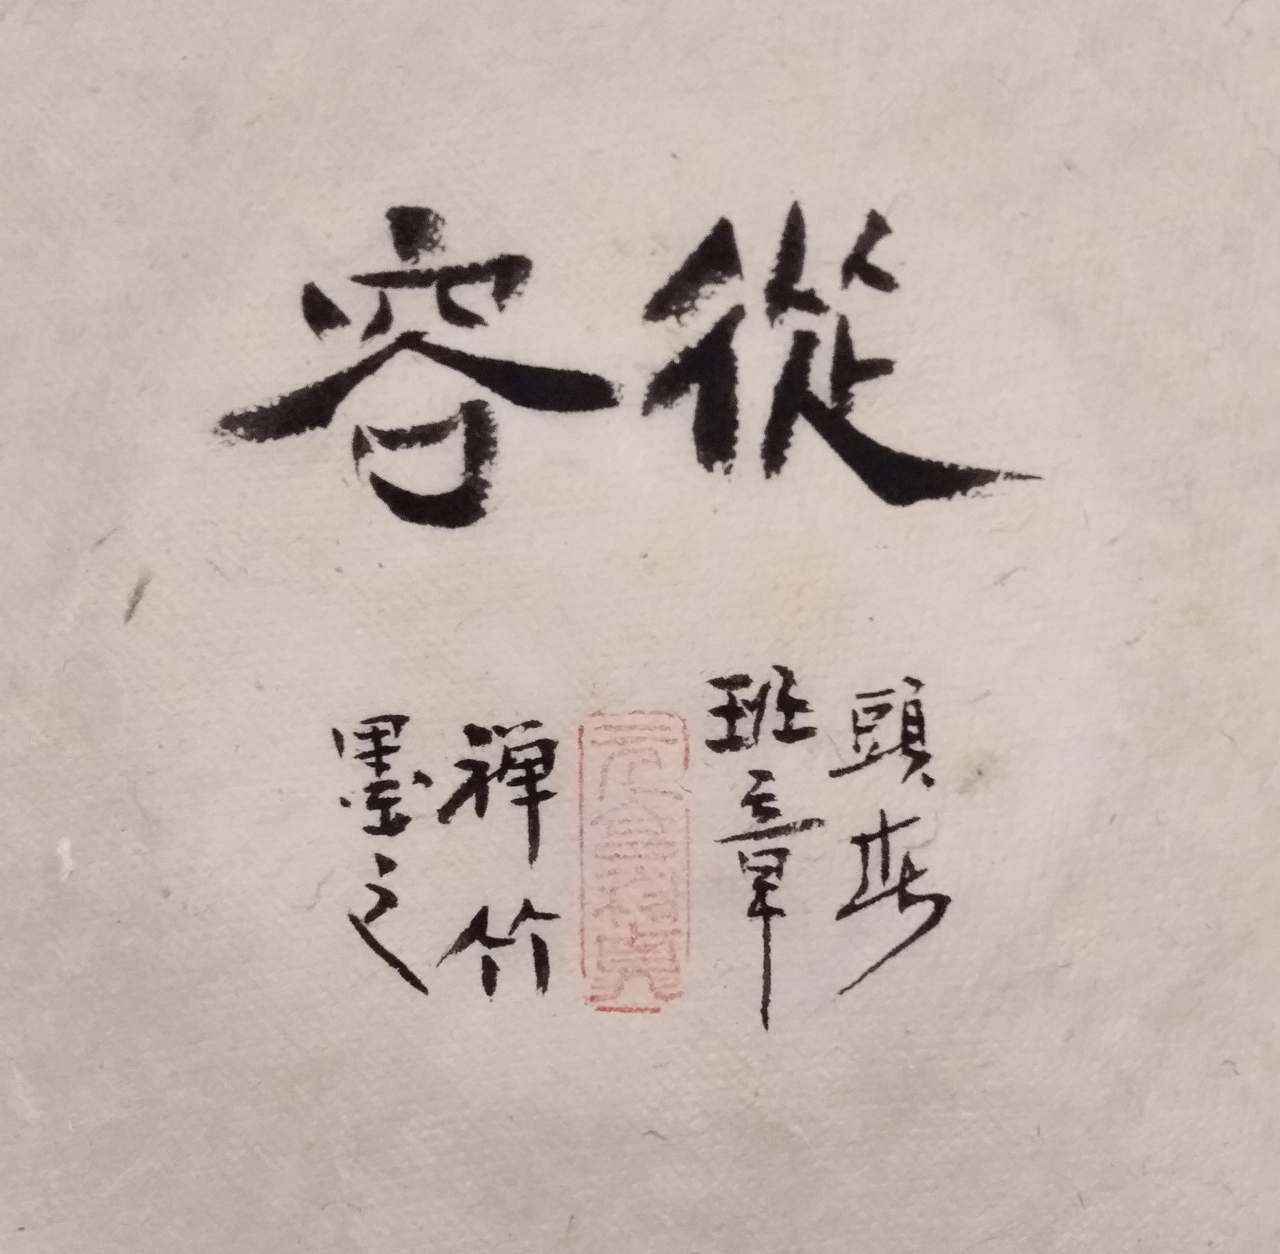 從容
頭春
班章
禪竹
墨之